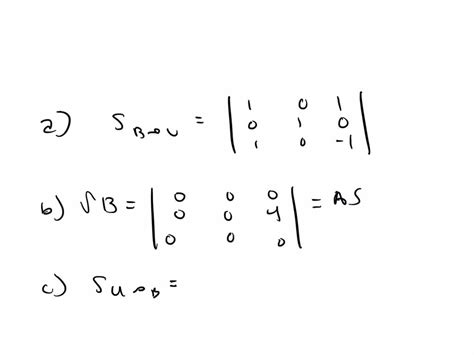 a) S B→U = | 1 0 1 |
| 0 1 0 |
| 1 0 -1 |
b) SB = | 0 0 0 | = AS
| 0 0 4 |
| 0 0 0 |
c) S U→B =